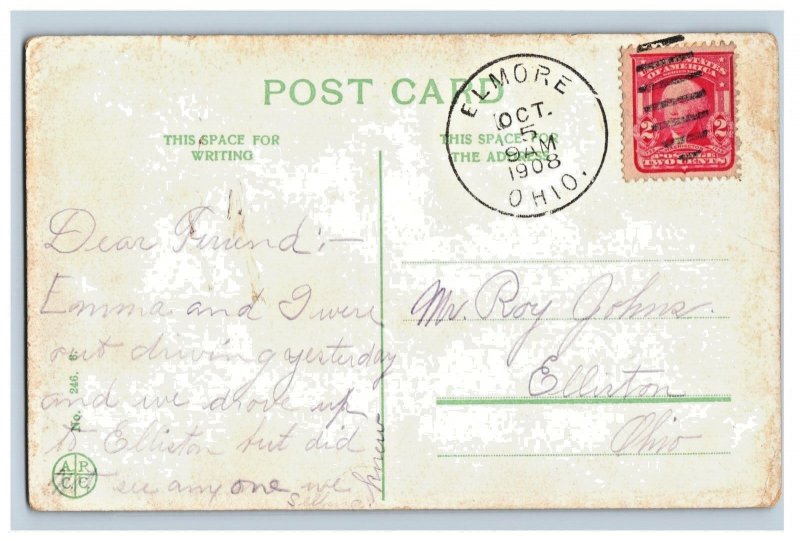 POST CARD
THIS SPACE FOR
WRITING
THIS SPACE FOR
THE ADDRESS
ELMORE
OCT.
5
9 AM
1908
OHIO.
STATES
OF AMERICA
2 2
TWO CENTS
Dear Friend:—
Emma and I were
out driving yesterday
and we drove up
to Elliston but did
see anyone we
knew
Mr. Roy Johns.
Elliston
Ohio
No. 246. 8.
A R
C. C.